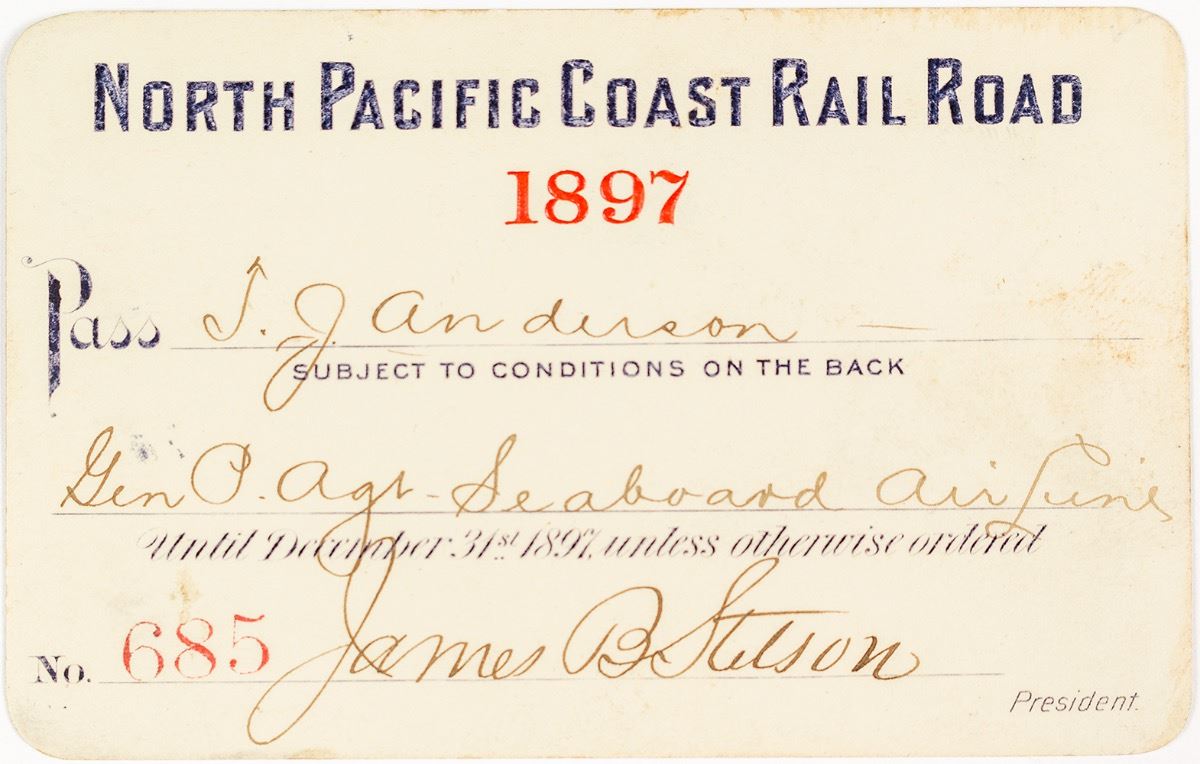 NORTH PACIFIC COAST RAIL ROAD
1897
Pass T. J. Anderson —
SUBJECT TO CONDITIONS ON THE BACK
Gen P. Agt - Seaboard Air Line
Until December 31st 1897, unless otherwise ordered
No. 685 James B Stetson
President.